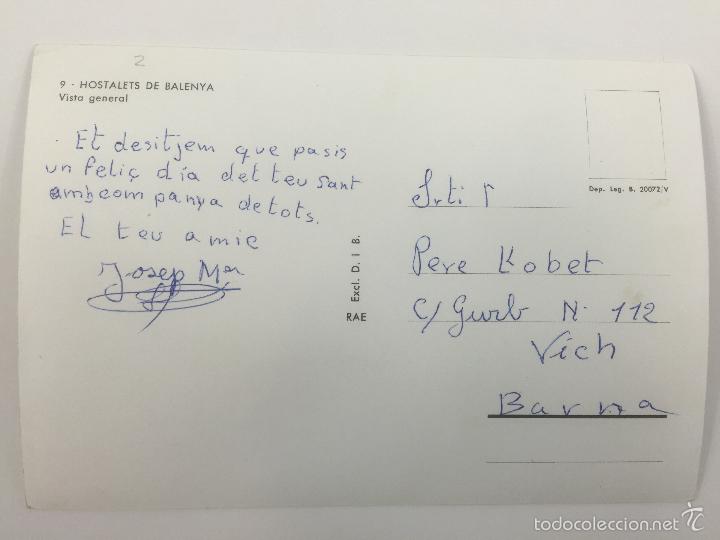 2
9 - HOSTALETS DE BALENYA
Vista general
. Et desitjem que pasis
un feliç día del teu Sant
amb companya de tots.
El teu amic
Josep Mª
Excl. D. I B.
RAE
Dep. Leg. B. 20072/V
Pere Kobet
C/ Gurb N- 112
Vich
Barna
todocoleccion.net